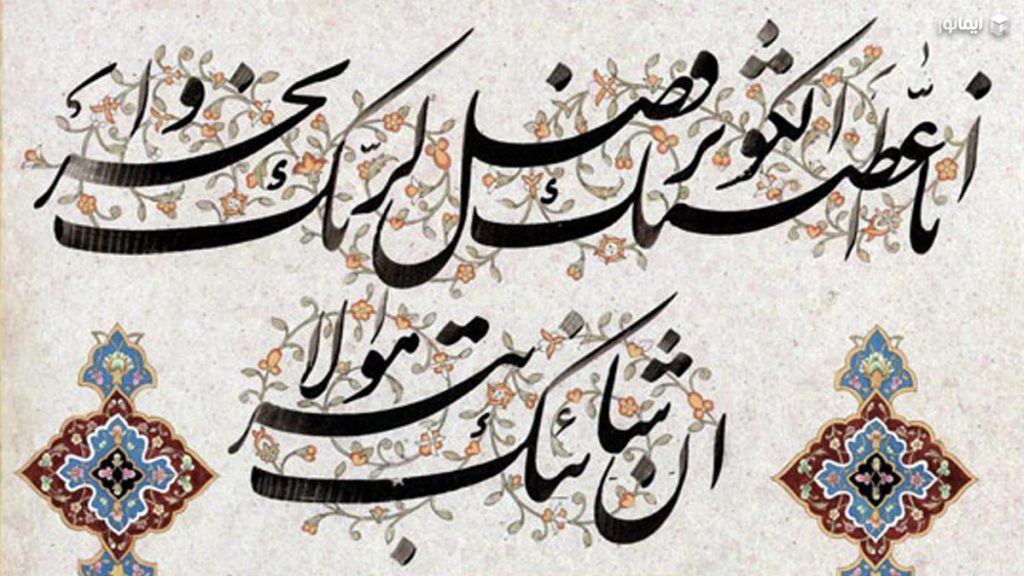 ایمانور
انّا اعطیناک الکوثر فصل لربّک وانحر
ان شانئک هو الابتر